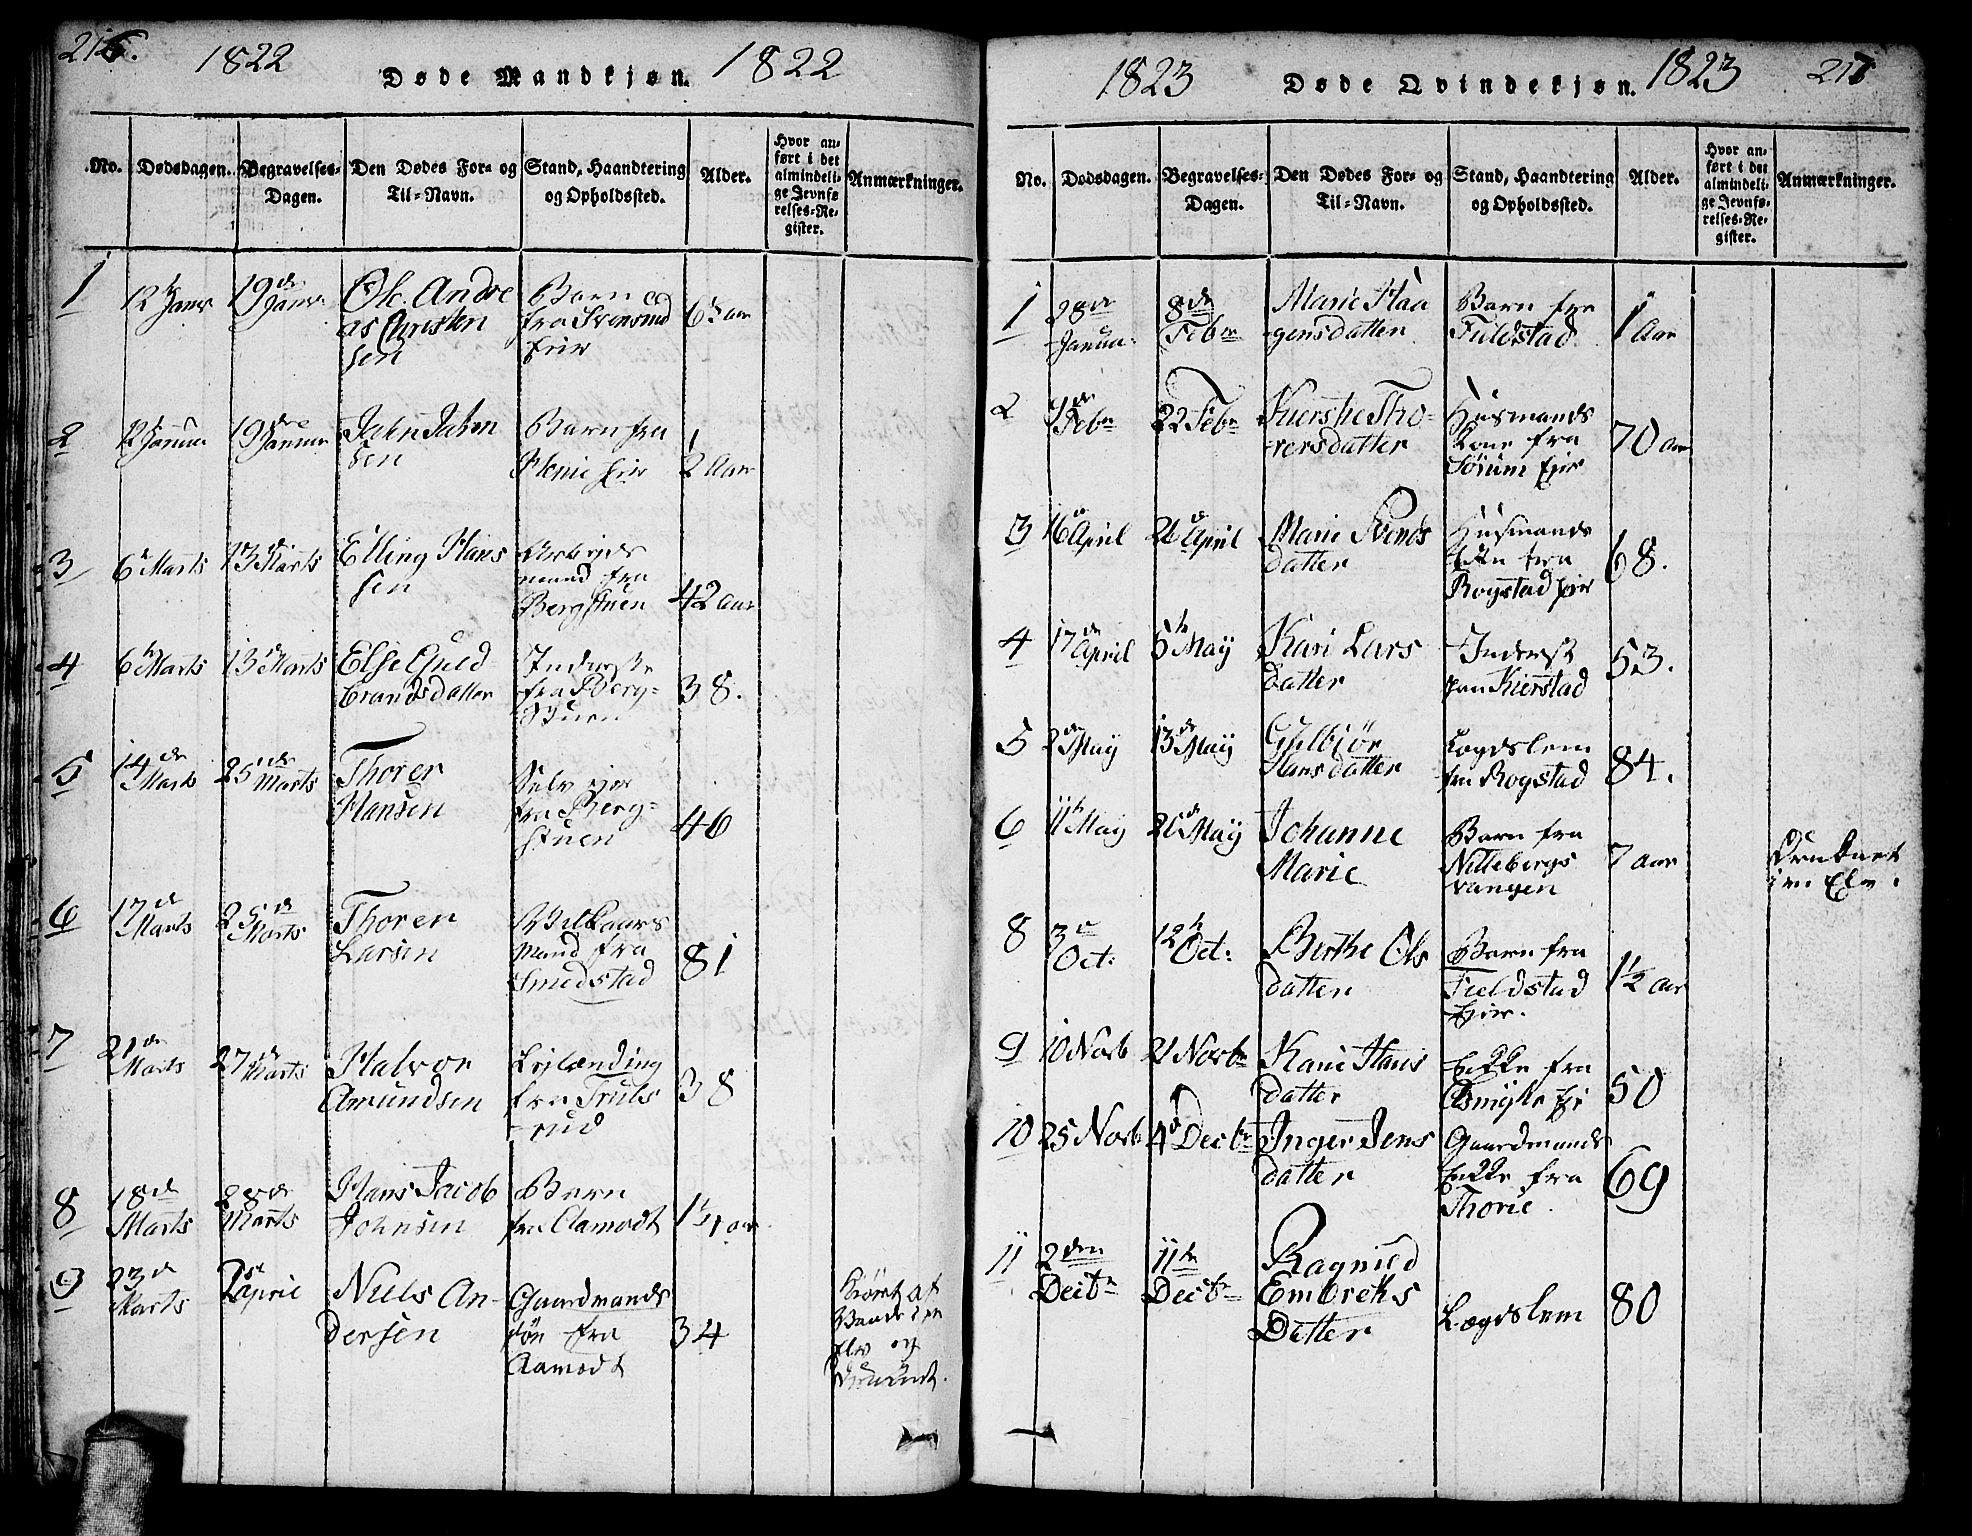 216.
1822
Døde Mandkjøn.
1822
No.
Dødsdagen.
Begravelses-
Dagen.
Den Dødes For- og
Til-Navn.
Stand, Haandtering
og Opholdssted.
Alder.
Hvor an-
ført i det
almindeli-
ge Jevnfø
relses-Re-
gister.
Anmærkninger.
1
12 Janr
19de Janr
Ole Andre
as Christen
sen
Barn
fra Svensrud
Eier
2
12 Januar
19de Januar
Jahn Jahn
sen
Barn fra
Eier
1/2 Aar
3
6 Marts
13 Marts
Elling Hans
sen
Arbejds
mand fra
Bergstuen
42 aar
4
6 Marts
13 Marts
Else Guld-
brandsdatter
Inderste
fra Berg-
stuen
38.
5
14de
Marts
25de
Marts
Thorer
Hansen
Selv eier
fra Berg-
stuen
46
6
17de
Marts
25de
Marts
Thorer
Larsen
Vilkaars
Mand fra
Smedstad
81
7
21de
Marts
27de
Marts
Halvor
Amundsen
Leilænding
fra Truls
rud
38
8
18de
Marts
28de
Marts
Hans Jacob
Johnsen
Barn
fra Aamodt
1 1/4 aar
9
23de
Marts
April
Niels An-
dersen
Gaardmands
søn fra
Aamodt
34
af
Elv og
1823
Døde Qvindekjøn.
1823
217
No.
Dødsdagen.
Begravelses-
Dagen.
Den Dødes For- og
Til-Navn.
Stand, Haandtering
og Opholdssted.
Alder.
Hvor an-
ført i det
almindeli-
ge Jevnfø-
relses-Re-
gister.
Anmærkninger.
1
28de
Janua-
8de
Febr
Marie Haa
gensdatter
Barn fra
Fieldstad
1 Aar
2
7de
Febr
22 Febr
Kiersti Tho-
rersdatter
Huusmands
Kone fra
Sørum Eier
70 aar
3
16 April
26 April
Marie Svends
datter
Huusmands
Enke fra
Rogstad Eier
68.
4
17de
April
5te May
Kari Lars
datter
Inderst
fra Kierstad
53.
5
2de May
13de May
Gulbjør
Hansdatter
Lægdslem
fra Rogstad
84.
6
11te May
26 May
Johanne
Marie
Barn fra
Nitteberg-
vangen
7 aar
Druknet
i en Elv.
8
3de
Oct:
12te
Oct:
Birthe Ols
datter
Barn fra
Fieldstad
Eier.
1 1/2 aar
9
10 Novb
21 Novbr
Karie Hans
datter
Enke fra
Asmyhr Ei
50
10
25 Novb
4de Decbr
Inger Jens
datter
Gaardmands
Enke fra
Thorie
69
11
2den
Decbr
11te
Decbr
Ragnild
Embreths
Datter
Lægdslem
80